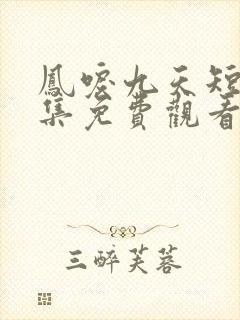 鳳唳九天短
集免費觀看
三醉芙蓉